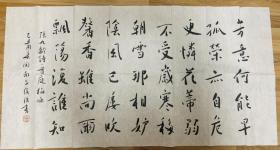 芳意何能早
孤榮亦自危
更憐花蒂弱
不受歲寒移
朝雪那相妒
陰風已屢吹
馨香雖尚爾
飄蕩復誰知
張九齡詩庭梅詠